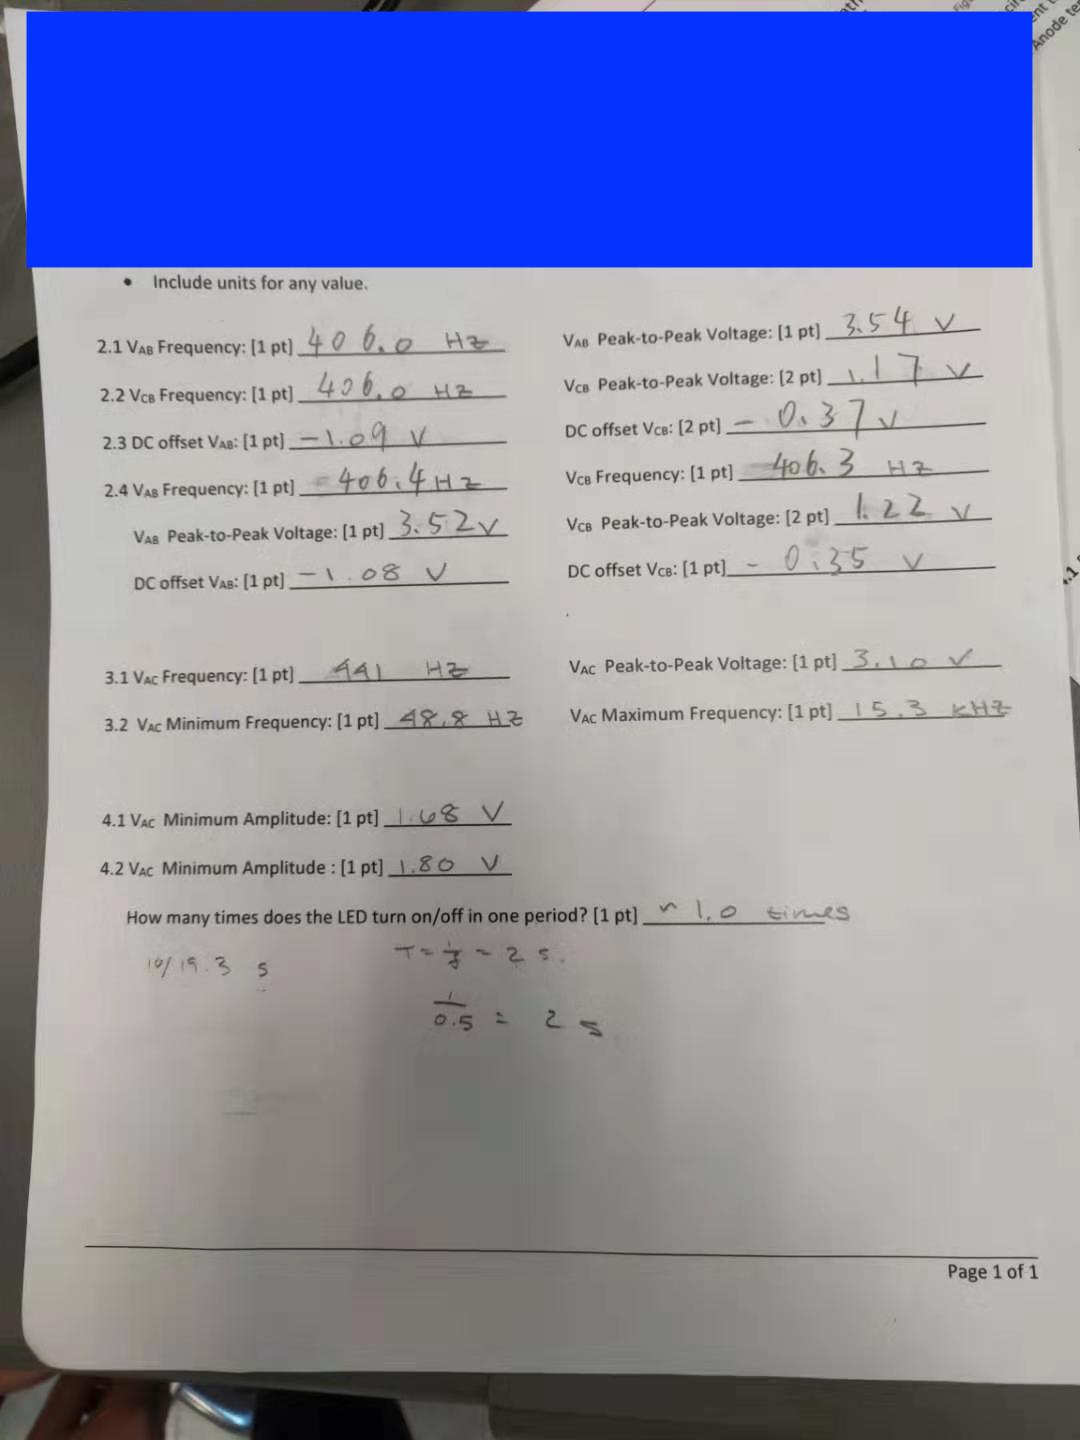 • Include units for any value.
2.1 VAB Frequency: [1 pt] 406.0 Hz
VAB Peak-to-Peak Voltage: [1 pt] 3.54 V
2.2 VCB Frequency: [1 pt] 406.0 Hz
VCB Peak-to-Peak Voltage: [2 pt] 1.17 V
2.3 DC offset VAB: [1 pt] -1.09 V
DC offset VCB: [2 pt] - 0.37 V
2.4 VAB Frequency: [1 pt] 406.4 Hz
VCB Frequency: [1 pt] 406.3 Hz
VAB Peak-to-Peak Voltage: [1 pt] 3.52 V
VCB Peak-to-Peak Voltage: [2 pt] 1.22 V
DC offset VAB: [1 pt] -1.08 V
DC offset VCB: [1 pt] - 0.35 V
3.1 VAC Frequency: [1 pt] 441 Hz
VAC Peak-to-Peak Voltage: [1 pt] 3.10 V
3.2 VAC Minimum Frequency: [1 pt] 48.8 HZ
VAC Maximum Frequency: [1 pt] 15.3 kHz
4.1 VAC Minimum Amplitude: [1 pt] 1.68 V
4.2 VAC Minimum Amplitude : [1 pt] 1.80 V
How many times does the LED turn on/off in one period? [1 pt] ~ 1.0 times
10/19.3 s
T = 1/f = 2 s.
1/0.5 = 2 s
Page 1 of 1
Anode